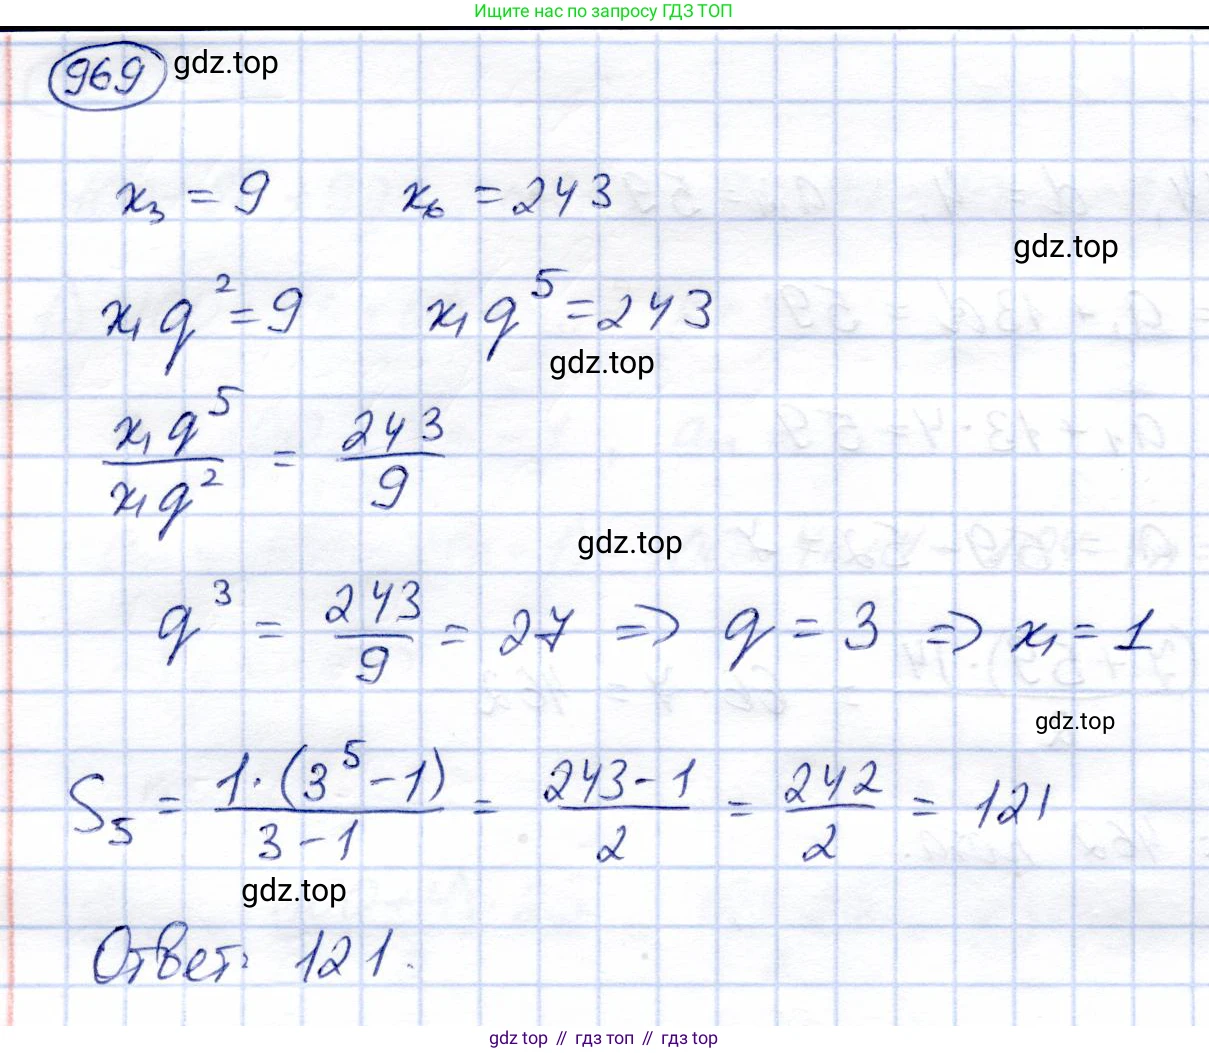 Ищите нас по запросу ГДЗ ТОП
969 gdz.top
x₃ = 9 x₆ = 243
gdz.top
x₁q² = 9 x₁q⁵ = 243
gdz.top
x₁q⁵ / x₁q² = 243 / 9
gdz.top
q³ = 243 / 9 = 27 => q = 3 => x₁ = 1
gdz.top
S₅ = 1 · (3⁵ - 1) / 3 - 1 = 243 - 1 / 2 = 242 / 2 = 121
gdz.top
Ответ: 121.
gdz top // гдз топ // гдз top